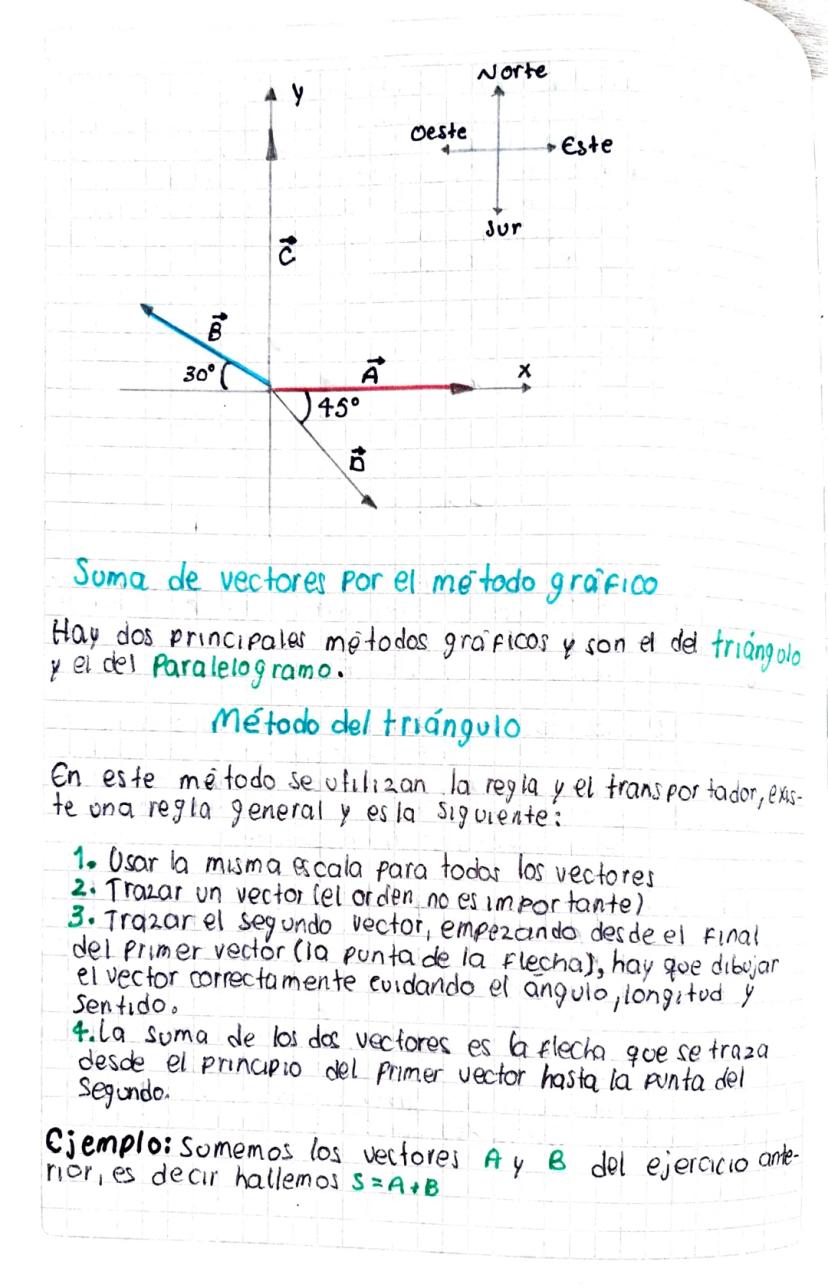 Norte
y
Oeste
Este
Sur
C
B
30°
A
x
45°
D
Suma de vectores por el método gráfico
Hay dos principales métodos gráficos y son el del triángulo
y el del Paralelogramo.
Método del triángulo
En este método se utilizan la regla y el transportador, exis-
te una regla general y es la siguiente:
1. Usar la misma escala para todos los vectores
2. Trazar un vector (el orden no es importante)
3. Trazar el segundo vector, empezando desde el final
del primer vector (la punta de la flecha), hay que dibujar
el vector correctamente cuidando el ángulo, longitud y
sentido.
4. La suma de los dos vectores es la flecha que se traza
desde el principio del primer vector hasta la punta del
segundo.
Ejemplo: Somemos los vectores A y B del ejercicio ante-
rior, es decir hallemos S = A + B